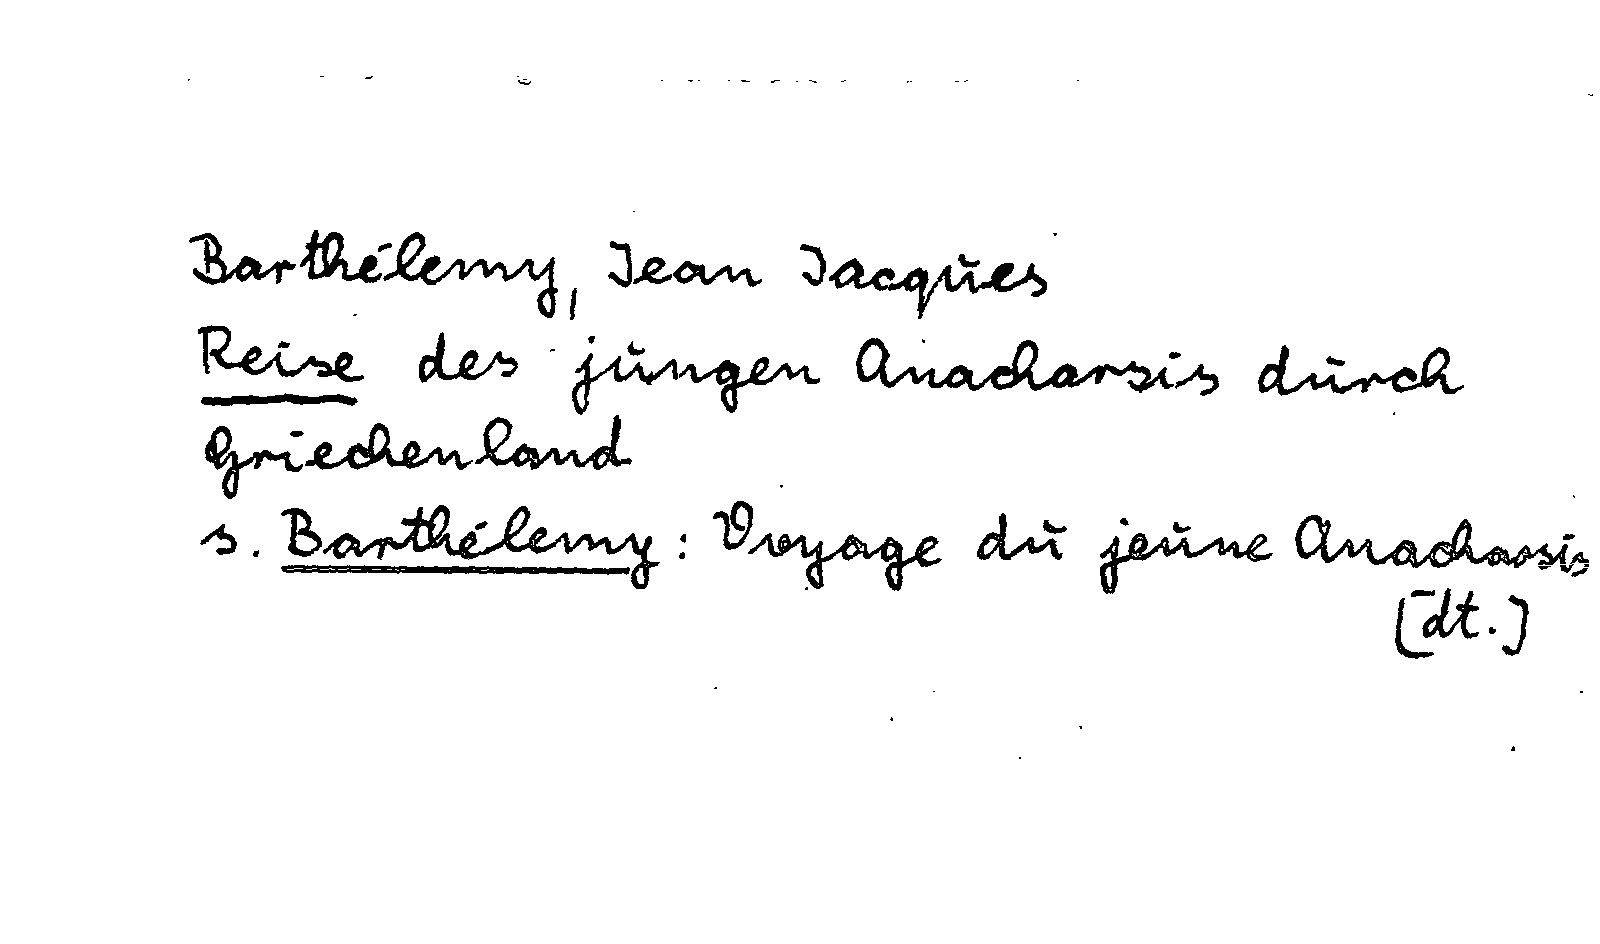 Barthélemy, Jean Jacques
Reise des jungen Anacharsis durch
Griechenland
s. Barthélemy: Voyage du jeune Anacharsis
[dt.]